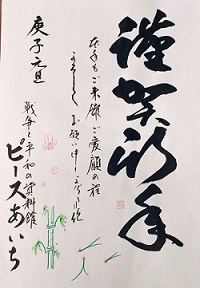 謹賀新年
本年もご来館ご愛顧の程
よろしくお願い申し上げます
庚子元旦
戦争と平和の資料館
ピースあいち